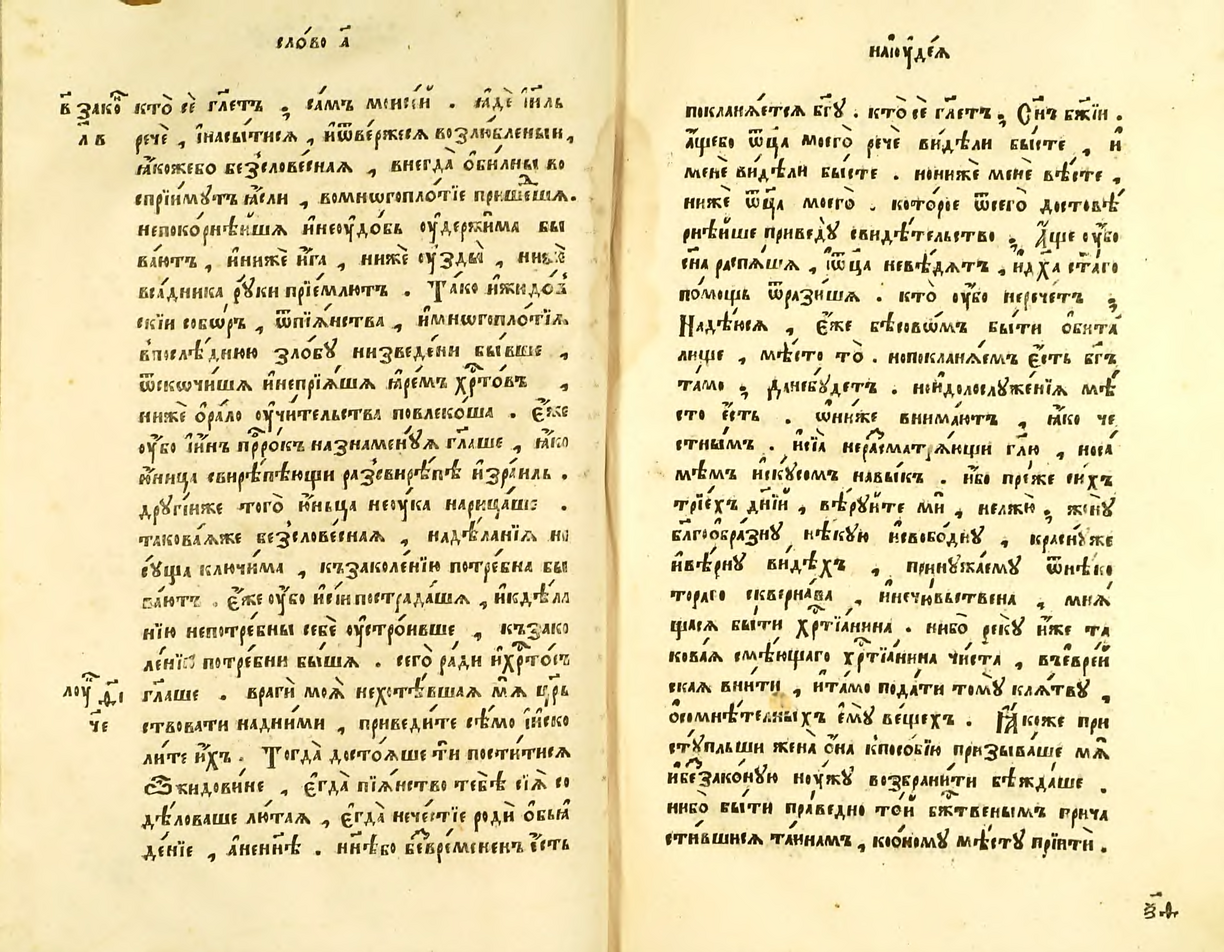 сло́во а҃
в҃ зако кто̀ сѐ гл҃етъ ; са́мъ моисе́й . ꙗ҆дѐ і҆и҃ль
л в речѐ , і҆насы́тисѧ , и҆ѿве́ржесѧ возлю́бленыи ,
ꙗ҆́кожебо безслове́снаѧ , внегда̀ ѻ҆би́лны во
спрїи́мутъ ꙗ҆́сли , вомнѡгопло́тїе прише́дшѧ .
непокорнѣ́йшѧ и҆неꙋдо́бь ᲂу҆держи́ма бы
ва́ютъ , и҆нижѐ и҆́га , нижѐ ᲂу҆зды̀ , нижѐ
вса́дника рꙋкѝ прїе́млютъ . Та́ко и҆жидо́в
скїи собѡ́ръ , ѿпїѧ́нства , и҆мнѡгопло́тїѧ
впослѣ́днюю зло́бꙋ низведе́ни бы́вше ,
ѿскочи́шѧ и҆непрїѧ́шѧ ꙗ҆ре́мъ хрⷭ҇то́въ ,
нижѐ ѻ҆ра́ло ᲂу҆чи́тельства повлеко́ша . Е҆́же
ᲂу҆́бо і҆и́нъ прⷪ҇ро́къ назнаменꙋ́ѧ гл҃аше , ꙗ҆́ко
ю҆́ница свирѣпѣ́ющи разсвирѣ́пѣ и҆зра́иль .
дрꙋгі́иже того̀ ю҆ньца̀ неꙋ́ка нарица́ше .
такова́ѧже безслове́снаѧ , надѣ́ланїѧ не
сꙋ́ща ключи́ма , къзаколе́нїю потре́бна бы
ва́ютъ . Е҆́же ᲂу҆́бо и҆сі́и пострада́шѧ , и҆кдѣ́ла
нїю непотре́бны себѐ ᲂу҆стро́ивше , къзако
ле́нїю потре́бни бы́шѧ . сего̀ ра́ди и҆хрⷭ҇то́съ
лꙋ҄ д҃і гл҃аше . врагѝ моѧ̀ нехотѣ́вшаѧ мѧ̀ цр҃ь
ч҃е ствовати надни́ми , приведи́те сѣ́мо і҆иско
ли́те и҆́хъ . Тогда̀ досто́ѧше ти пости́тисѧ
Ѽжидови́не , є҆гда̀ пїѧ́нство тебѣ̀ сїѧ̀ со
дѣ́ловаше лю́таѧ , є҆гда̀ нече́стїе родѝ ѻ҆бьꙗ
де́нїе , а҆нены́нѣ . ны́нѣбо безвре́мененъ є҆́сть
наїꙋде́ѧ
покланѧ́етсѧ бг҃ꙋ . кто̀ сѐ гл҃етъ ; Сн҃ъ бж҃їи .
а҆́щебо ѿц҃а моего̀ речѐ ви́дѣли бы́сте , и҆
менѐ ви́дѣли бы́сте . нонижѐ менѐ вѣ́сте ,
нижѐ ѿц҃а моего̀ . кото́рїе ѿсего̀ достовѣ
рнѣ́йше приведꙋ̀ свидѣ́тельство ; А҆́ще ᲂу҆́бо
сн҃а распѧ́шѧ , і҆ѿц҃а невѣ́дѧтъ , и҆дх҃а ст҃аго
по́мощь ѿрази́шѧ . кто̀ ᲂу҆́бо нерече́тъ ;
Надѣ́юсѧ , є҆́же бѣсовѡ́мъ бы́ти ѻ҆бита́
лище , мѣ́сто то̀ . непоклана́емъ є҆́сть бг҃ъ
та́мо ; данебꙋ́детъ . но́идолослꙋже́нїѧ мѣ́
сто є҆́сть . ѡ҆ни́же внима́ютъ , ꙗ҆́ко че
стны́мъ . и҆сїѧ̀ нерасматрѧ́ющи гл҃ю , носа
мѣ́мъ и҆́скꙋсомъ навы́къ . и҆́бо пре́же си́хъ
трїе́хъ дні́й , вѣ́рꙋйте ми , нелжꙋ̀ , женꙋ̀
благоѻбра́знꙋ нѣ́кꙋю исвобо́днꙋ , кра́снꙋже
и҆вѣ́рнꙋ ви́дѣхъ , принꙋжа́емꙋ ѿнѣ́ко
тораго скверна́ва , и҆нечю́вьствена , мнѧ́
щасѧ бы́ти хрⷭ҇тїа́нина . нибо̀ рекꙋ̀ и҆́же та
кова́ѧ смѣ́ющаго хрⷭ҇тїа́нина чи́ста , въевре́и
скаѧ вни́ти , и҆та́мо пода́ти томꙋ̀ клѧ́твꙋ ,
ѻ҆сомнѣ́телныхъ є҆мꙋ̀ ве́щехъ . Ꙗ҆́коже при
стꙋ́пльши жена̀ ѻ҆на̀ кпосо́бїю призыва́ше мѧ̀
и҆беззако́нꙋю нꙋ́жꙋ возбрани́ти бѣ́ждаше .
нибо̀ бы́ти пра́ведно то́й бжⷭ҇твенымъ прича
сти́вшисѧ та́инамъ , коѻ́номꙋ мѣ́стꙋ прїити .
ѯ҃ѳ